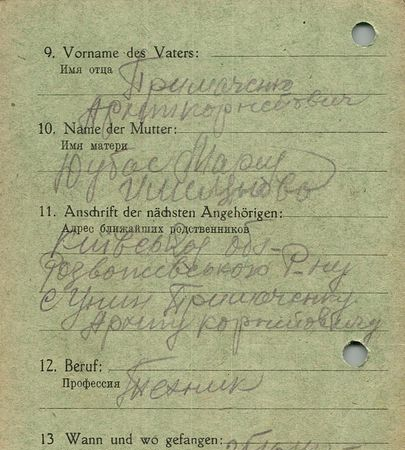 9. Vorname des Vaters:
Имя отца
Примаченко
Архип корнейович
10. Name der Mutter:
Имя матери
Мария
11. Anschrift der nächsten Angehörigen:
Адрес ближайших родственников
Київська обл-
Р-ну
с Унин Примаченку
Архипу корнійовичу
12. Beruf:
Профессия
Техник
13 Wann und wo gefangen: